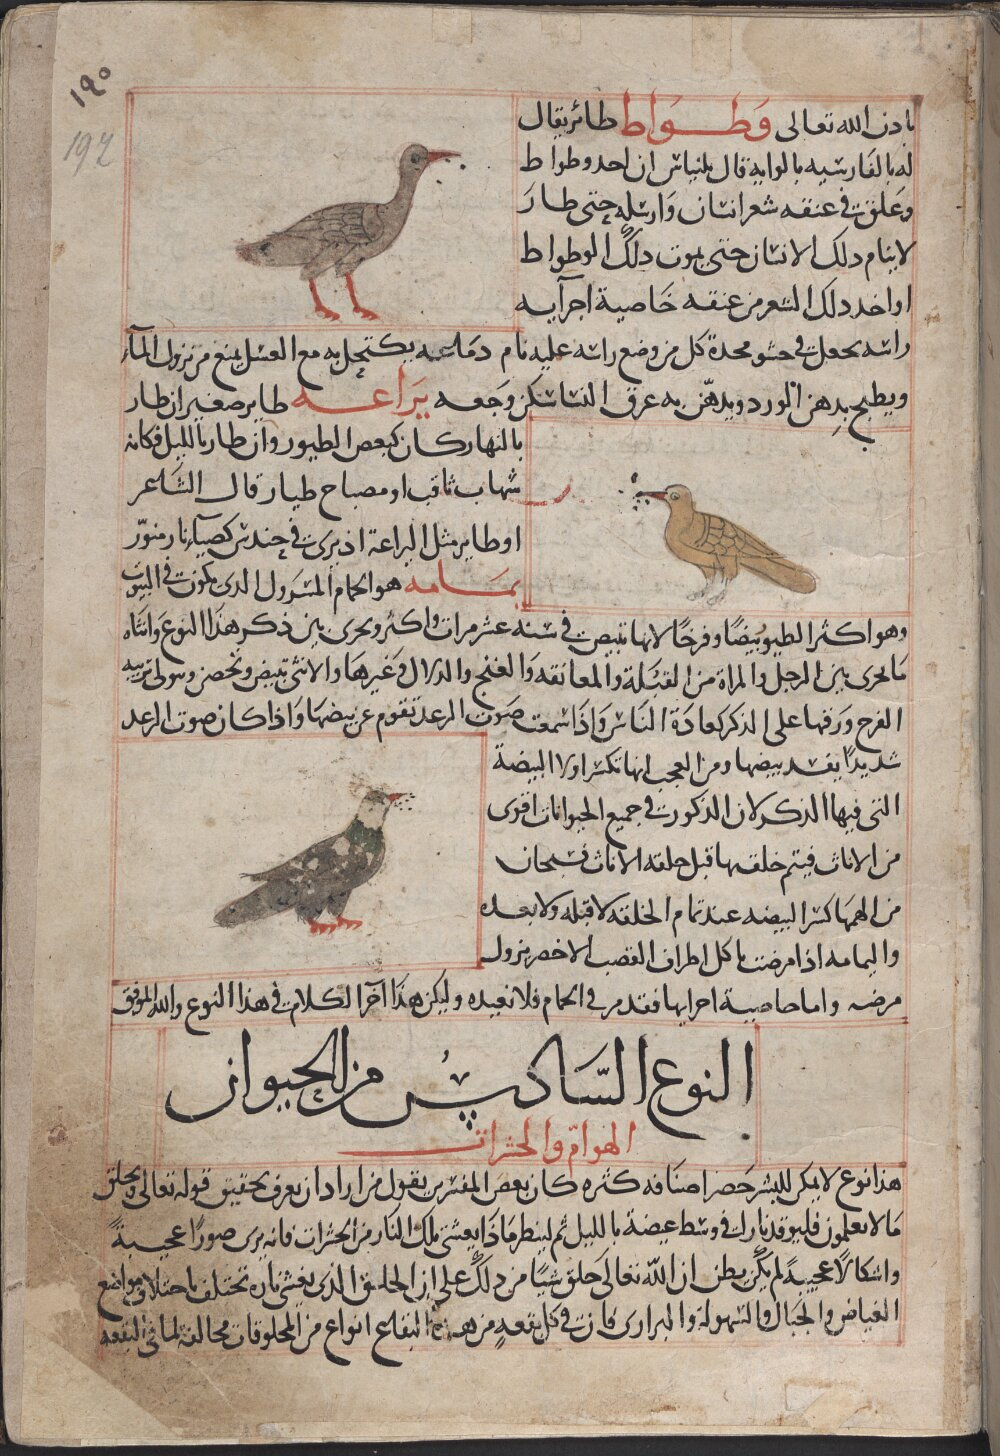 ١٩٠
192
باذن الله تعالى وطواط طائر يقال
له بالفارسيه بالوايه قال بلنياس ان احد وطواط
وعلق في عنقه شعر انسان وارسله حتى طار
لا ينام ذلك الانسان حتى يموت ذلك الوطواط
او اخد ذلك الشعر من عنقه خاصية اجزآيه
راسه يجعل في حشو مخدة كل من وضع راسه عليه نام دماغه يكتحل به مع العسل يمنع من نزول المآء
ويطبخ بدهن الورد ويدهن به عرق النسا سكن وجعه يراعه طاير صغير ان طار
بالنهار كان كبعض الطيور وان طار بالليل فكانه
شهاب ثاقب او مصباح طيار قال الشاعر
او طاير مثل اليراعة اذ يرى في حندس كضياء نار منور
يمامه هو الحمام المسرول الدى يكون في البيوت
وهو اكثر الطيور بيضا وفرخا لانها تبيض في سنه عشر مرات واكثر ويجرى بين ذكر هذا النوع وانثاه
ما يجرى بين الرجل والمراة من القبلة والمعانقه والغنج والدلال وغيرها والانثى تبيض وتحضن وتتولى تربيه
الفرخ وزقها على الذكر كعادة الناس واذا سمعت صوت الرعد تقوم عن بيضها واذا كان صوت الرعد
شديدا يفسد بيضها ومن العجب انها تكسر اولا البيضة
التى فيها الذكر لان الذكورت في جميع الحيوانات اقوى
من الاناث فيتم خلقها قبل خلقه الاناث فسبحان
من الهمها كسر البيضه عند تمام الخلقه لا قبله ولا بعده
واليمامه اذا مرضت تاكل اطراف القصب الاخضر يزول
مرضه واما خاصية اجزايها فقد مر في الحمام فلا نعيده وليكن هذا آخر الكلام في هذا النوع والله الموفق
النوع السادس من الحيوان
الهوام والحشرات
هذا نوع لا يمكن للبشر حصر اصنافه كثره كان بعض المفسرين يقول من اراد ان يعرف تحقيق قوله تعالى ويخلق
ما لا تعلمون فليوقد نارا في وسط غيضة بالليل ثم لينظر ماذا يغشى تلك النار من الحشرات فانه يرى صورا عجيبة
واشكالا عجيبة لم يكن يظن ان الله تعالى خلق شيا من ذلك على ان الخلق الذى يغشى ناره تختلف باختلاف مواضع
الغياض والجبال والسهولة والبرارى فان في كل بقعه من هذه البقاع انواع من المخلوقات مخالفة لما في البقعه